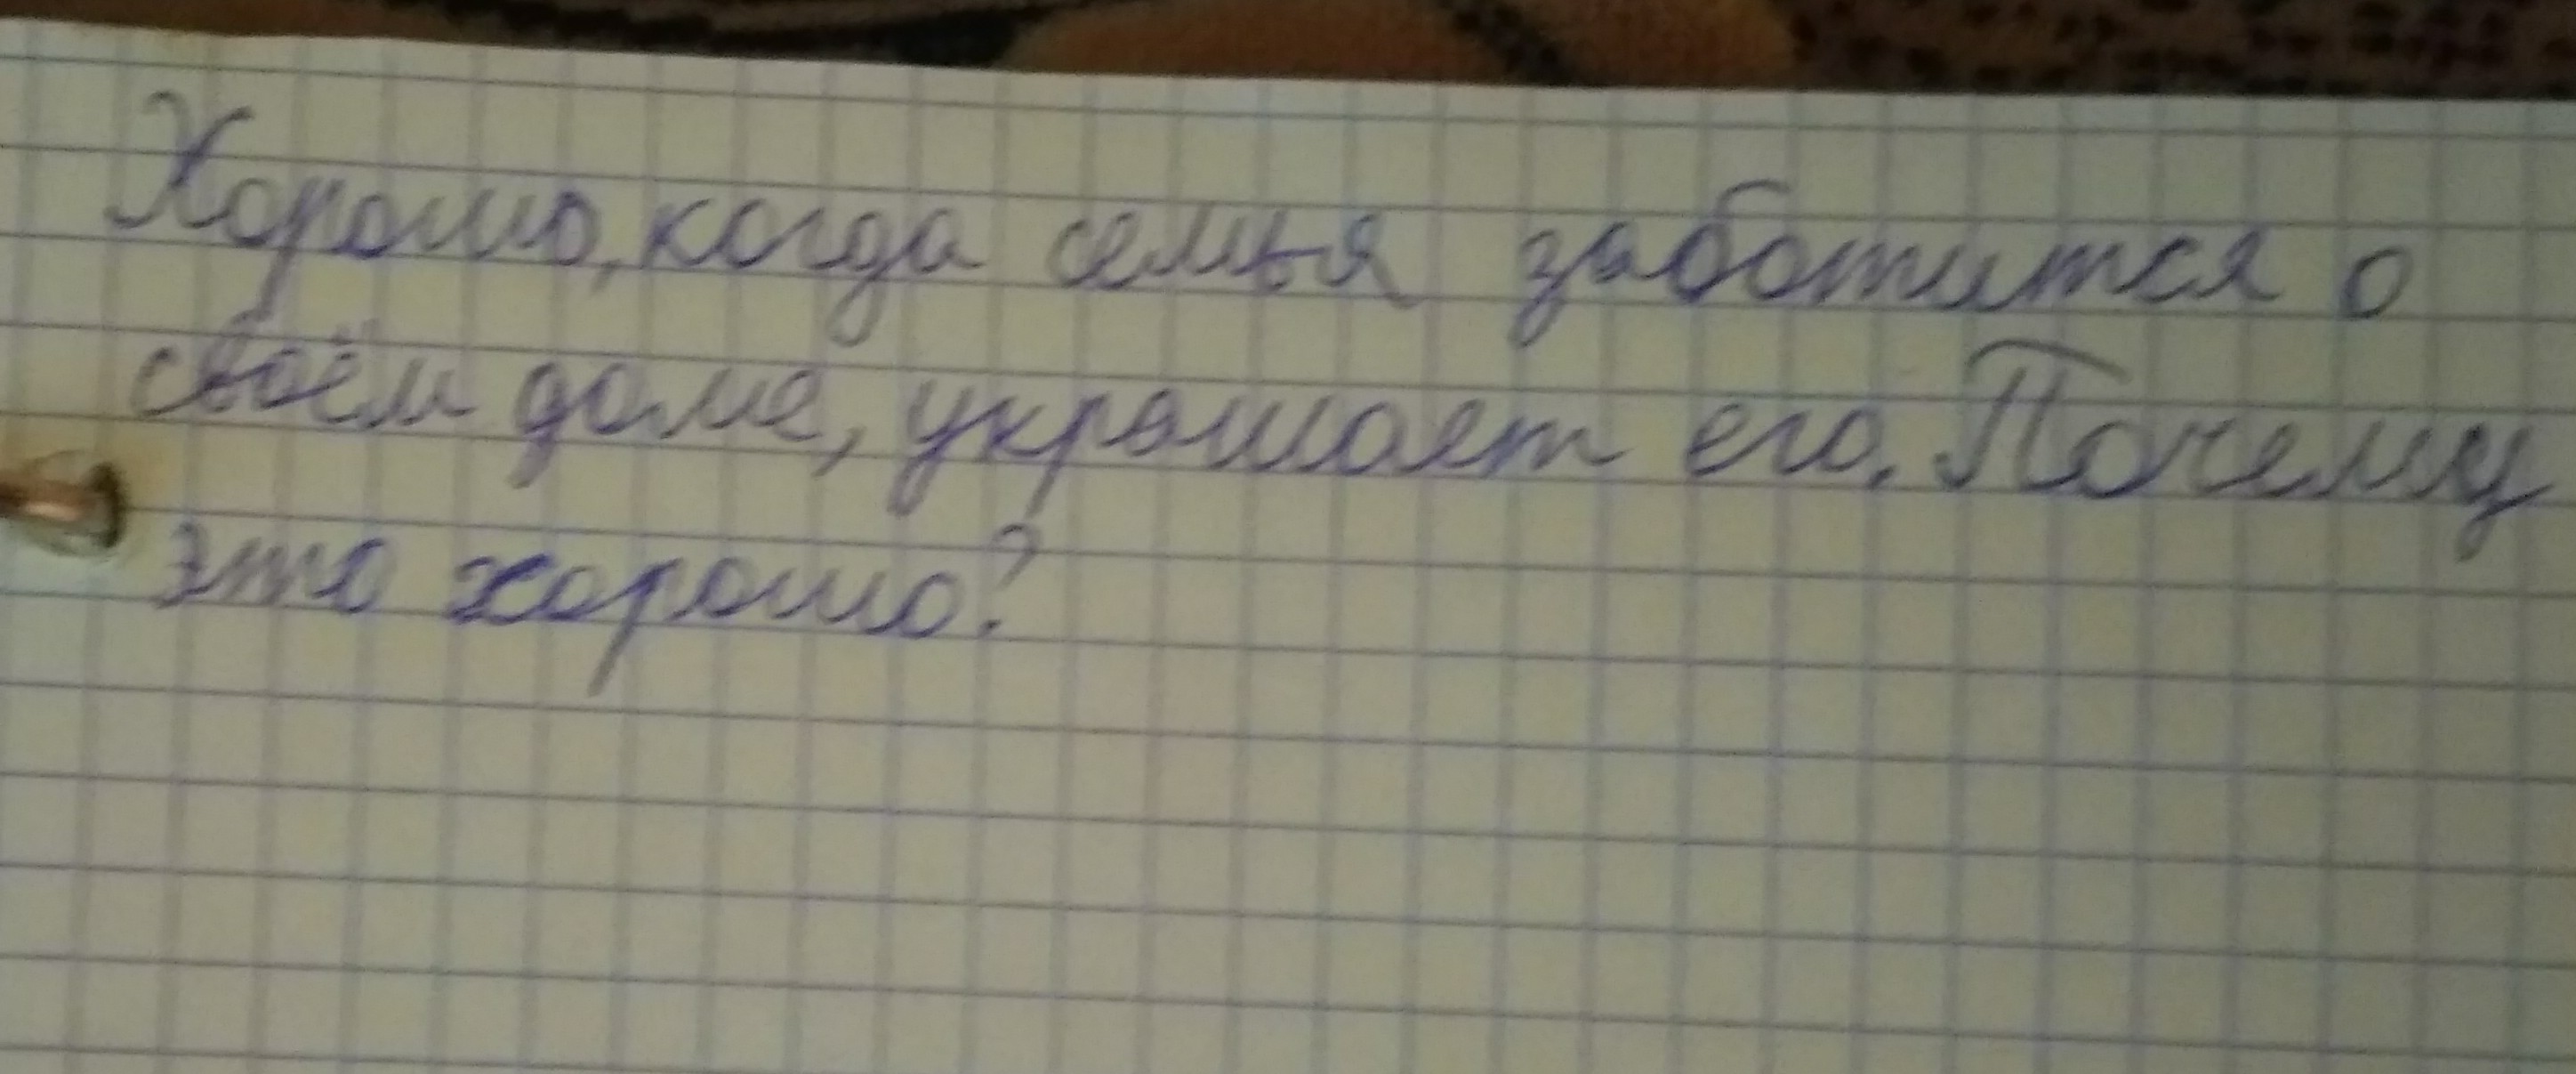 Хорошо, когда семья заботится о
своём доме, украшает его. Почему
это хорошо?